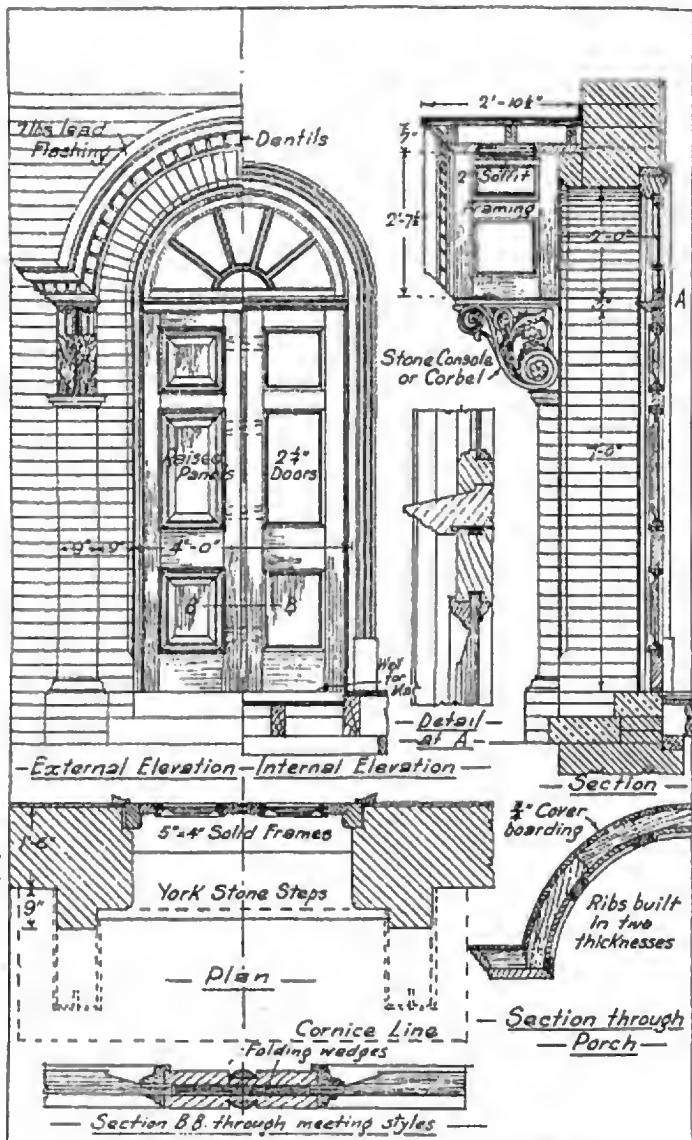 7 lbs lead
Flashing
Dentils
2'-10½"
7"
2" Soffit
Framing
2'-7½"
2'-0"
3"
A
Stone Console
or Corbel
7'-0"
Raised
Panels
2¼"
Doors
9" 9"
4'-0"
B B
Well
for
Mat
Detail
at A
External Elevation
Internal Elevation
Section
5"×4" Solid Frames
1'-6"
9"
York Stone Steps
Plan
Cornice Line
¾" Cover
boarding
Ribs built
in two
thicknesses
Section through
Porch
Folding wedges
Section B.B. through meeting styles